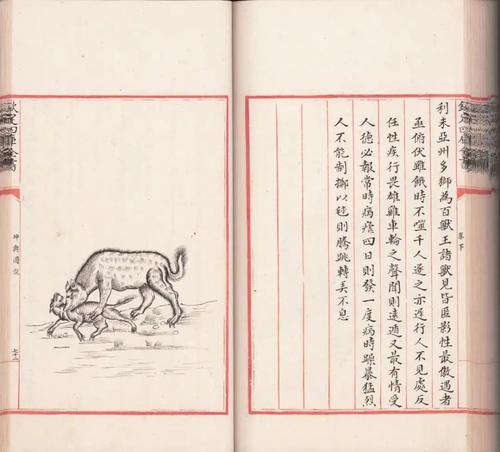 欽定四庫全書
卷下
利未亞州多獅為百獸王諸獸見皆匿影性最傲遇者
亟俯伏雖餓時不噬千人逐之亦遲行人不見處反
任性疾行畏雄雞車輪之聲聞則遠遁又最有情受
人德必報常時病瘧四日則發一度病時躁暴猛烈
人不能制擲以毬則騰跳轉弄不息
欽定四庫全書
坤輿圖說